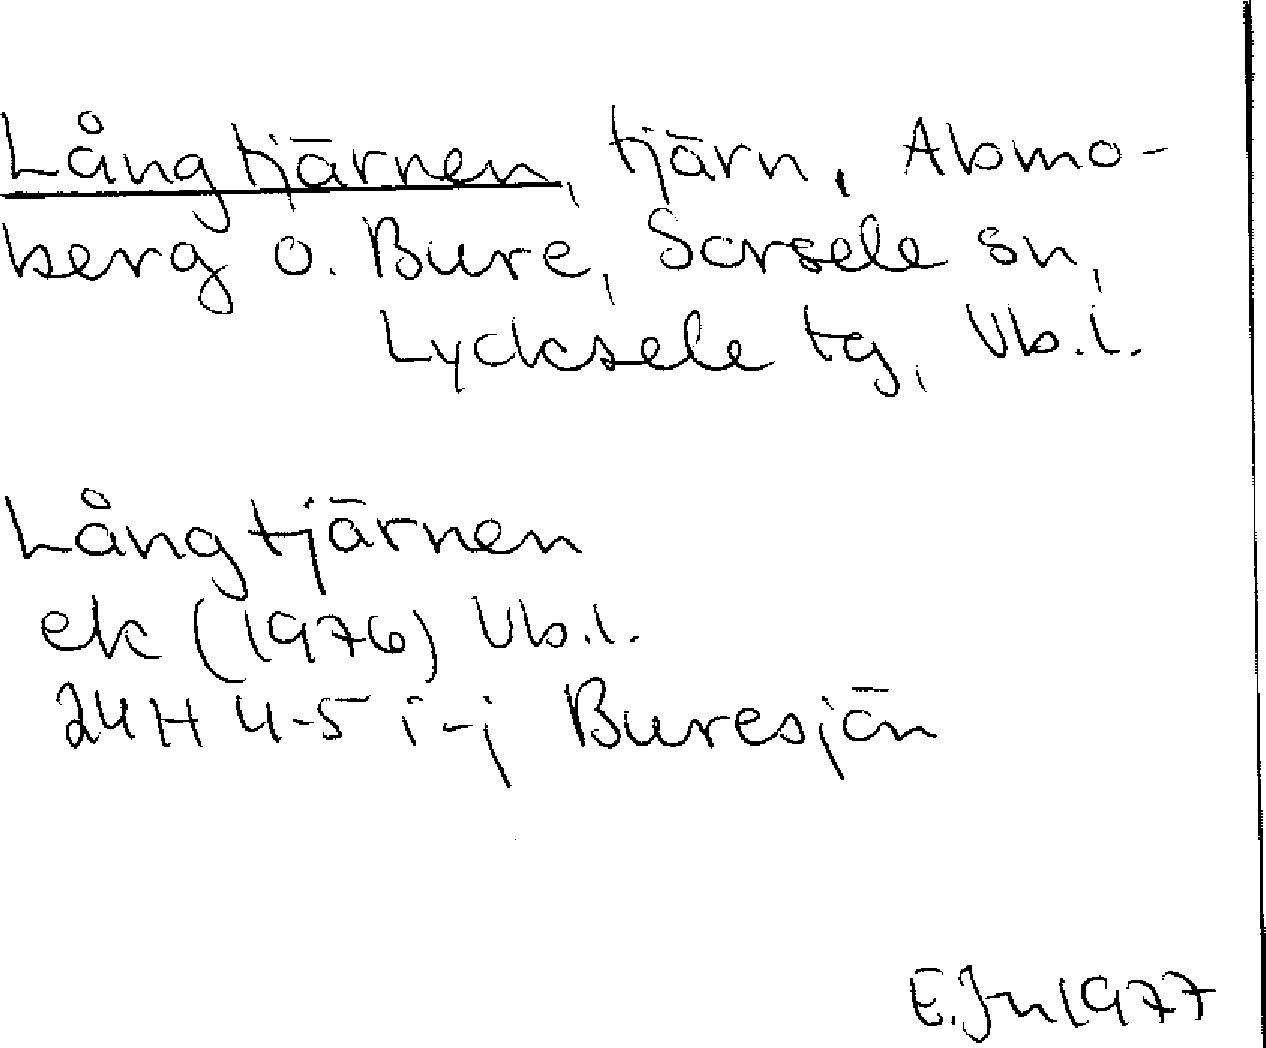 Långtjärnen, tjärn, Abmo-
berg o. Bure, Sorsele sn,
Lycksele tg, Vb.l.
Långtjärnen
ek (1976) Vb.l.
24H 4-5 i-j Buresjön
E.Jn 1977